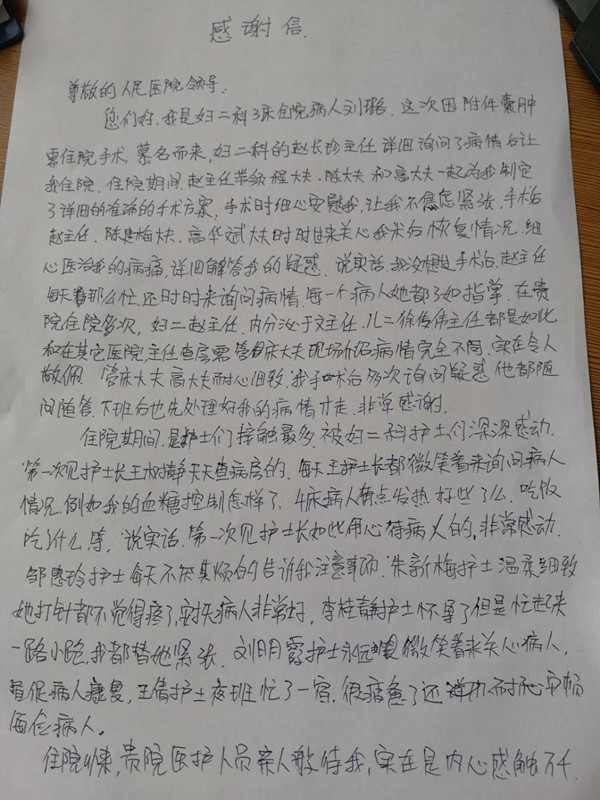 感谢信.
尊敬的人民医院领导:
您们好.我是妇二科3床住院病人刘璐.这次因附件囊肿
需住院手术,慕名而来,妇二科的赵长珍主任详细询问了病情后让
我住院.住院期间,赵主任带领程大夫.陈大夫和高大夫一起为我制定
了详细的准确的手术方案,手术时细心安慰我,让我不急怎紧张.手术后
赵主任.陈建梅大夫.高华斌大夫时时过来关心我术后恢复情况.细
心医治我的病痛,详细解答我的疑惑.说实话.我没想过手术后.赵主任
每天看那么忙.还时时来询问病情.每一个病人她都了如指掌.在贵
院住院多次,妇二赵主任.内分泌于文主任.儿二徐传伟主任都是如此
和在其它医院主任查房需管床大夫现场介绍病情完全不同.实在令人
敬佩.管床大夫高大夫耐心细致.我手术后多次询问疑惑他都随
问随答.下班后也先处理好我的病情才走.非常感谢.
住院期间.是护士们接触最多.被妇二科护士们深深感动.
第一次见护士长天天查病房的.每天王护士长都微笑着来询问病人
情况.例如我的血糖控制怎样了.4床病人有点发热好些了么.吃饭
吃什么等,说实话.第一次见护士长如此用心待病人的,非常感动.
邹惠玲护士每天不厌其烦的告诉我注意事项.朱新梅护士温柔细致
她打针都不觉得疼了,对病人非常好,李桂静护士怀孕了但是忙起来
一路小跑.我都替她紧张.刘明霞护士永远微笑着来关心病人,
督促病人康复,王倩护士夜班忙了一宿.很疲惫了还详细耐心
病人.
住院以来,贵院医护人员亲人般待我,实在是内心感触不